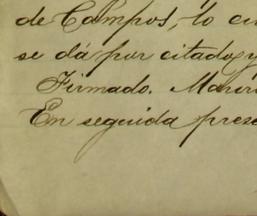 de Campos, lo cu
se dá por citado y
Firmado. Maria
En seguida prese